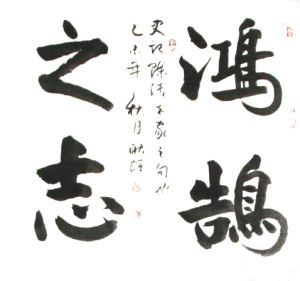 鴻鵠
之志
史記陳涉世家之句也
乙未年秋月